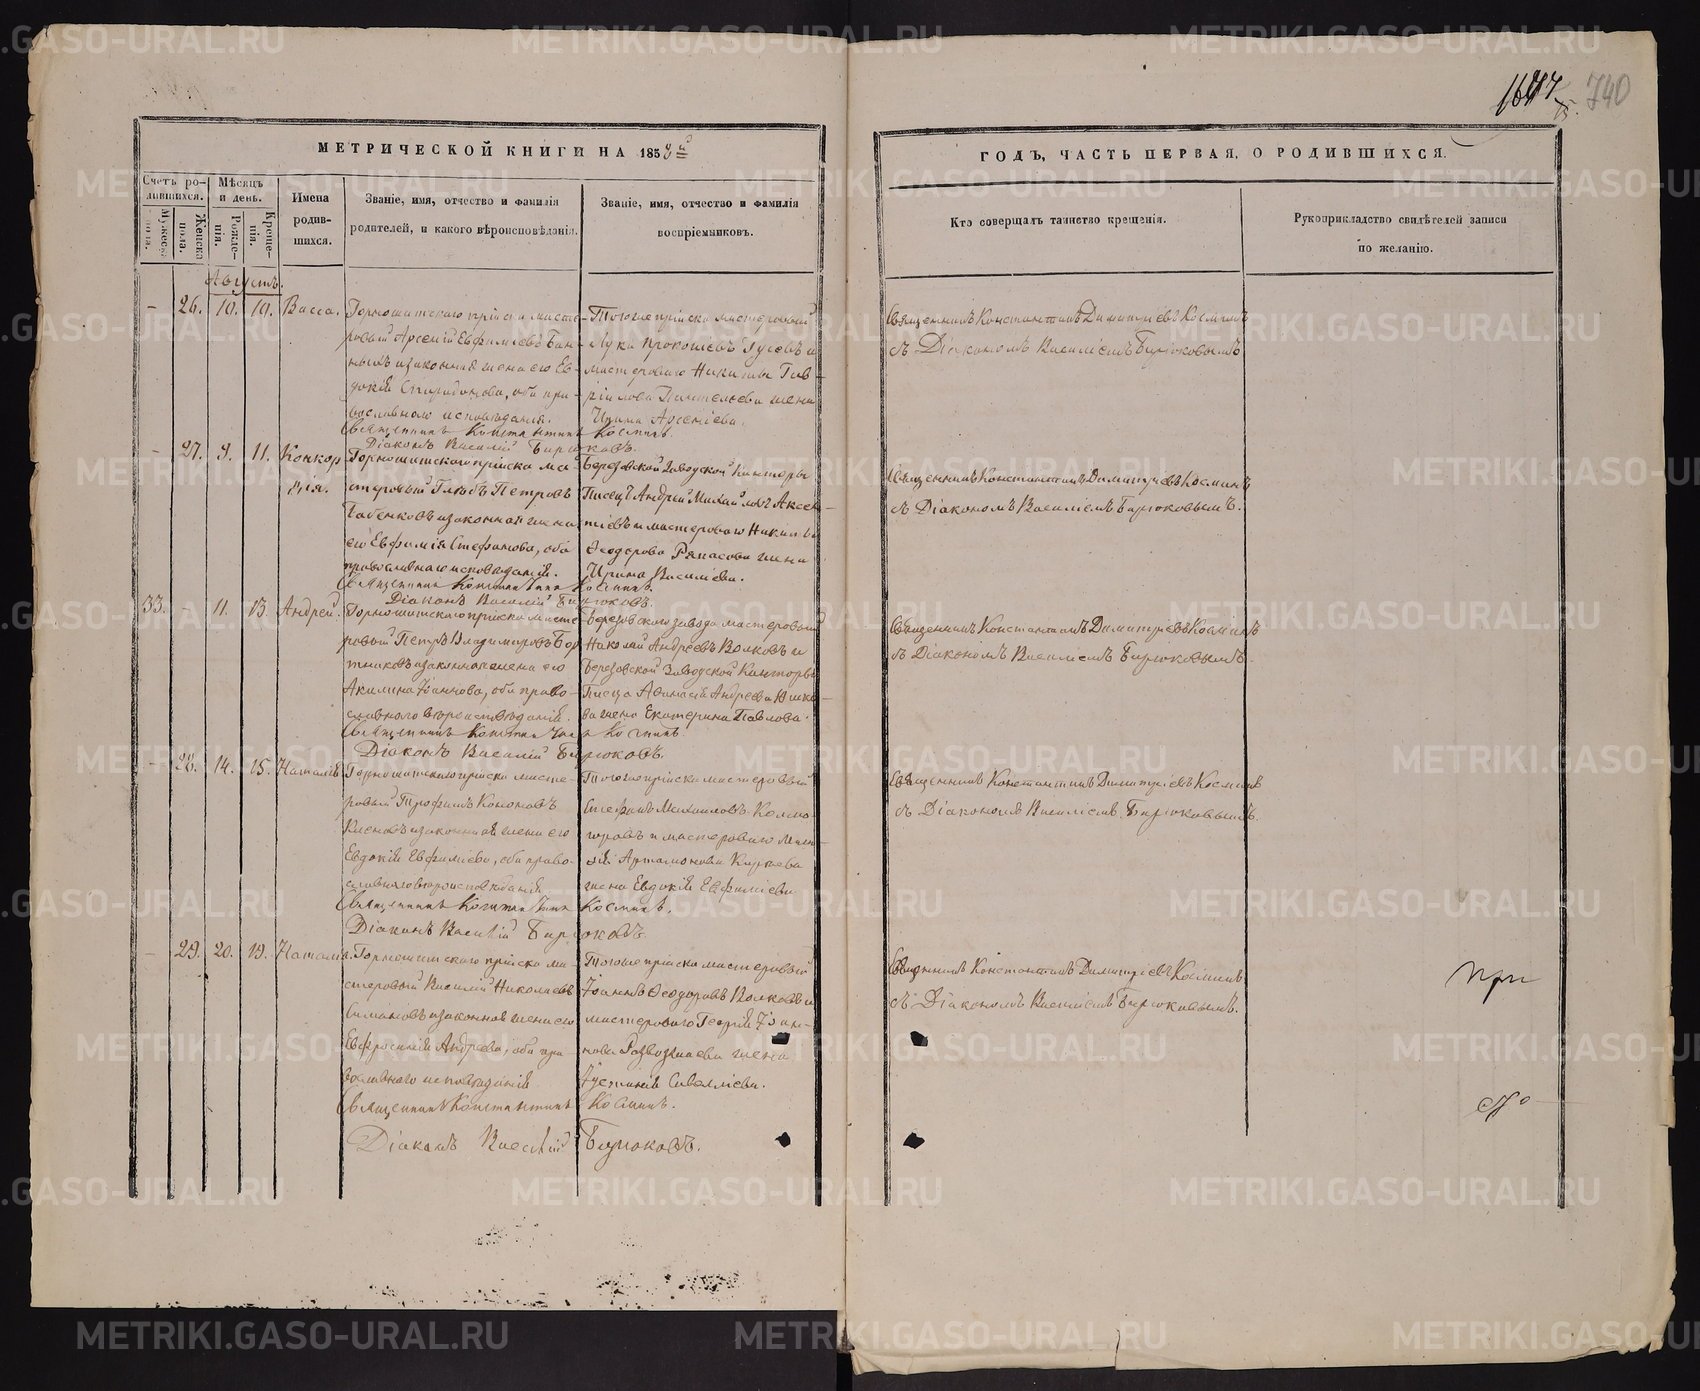 1647
740
МЕТРИЧЕСКОЙ КНИГИ НА 1858й
ГОДЪ, ЧАСТЬ ПЕРВАЯ, О РОДИВШИХСЯ.
Счетъ родившихся.
Мужеска пола.
Женска пола.
Мѣсяцъ и день.
Рожденія.
Крещенія.
Имена родившихся.
Званіе, имя, отчество и фамилія
родителей, и какого вѣроисповѣданія.
Званіе, имя, отчество и фамилія
воспріемниковъ.
Кто совершалъ таинство крещенія.
Рукоприкладство свидѣтелей записи
по желанію.
Августъ.
- 26. 10. 10. Васса.
Горнощитскаго пріиска масте-
ровый Арсеній Евфиміевъ
и законная жена его Ев-
докія Спиридонова, оба пра-
вославнаго исповѣданія.
Священникъ Константинъ Косминъ.
Діаконъ Василій Бирюковъ.
Тогоже пріиска мастеровый
Лука Прокопіевъ Гусевъ и
мастероваго Никиты Гав-
ріилова Пантелѣева жена
Ирина Арсеніева.
Священникъ Константинъ Димитріевъ Косминъ
съ Діакономъ Василіемъ Бирюковымъ
- 27. 9. 11. Конкор
дія.
Горнощитскаго пріиска ма-
стеровый Глѣбъ Петровъ
и законная жена
его Евфимія Стефанова, оба
православнаго исповѣданія.
Священникъ Константинъ Косминъ.
Діаконъ Василій Бирюковъ.
Березовской Заводской Канторы
Писецъ Андрей Михайловъ Аксен-
тіевъ и мастероваго Никиты
Ѳеодорова жена
Ирина Василіева.
Священникъ Константинъ Димитріевъ Косминъ
съ Діакономъ Василіемъ Бирюковымъ.
33. - 11. 13. Андрей.
Горнощитскаго пріиска масте-
ровый Петръ Владиміровъ Бор
тниковъ и законная жена его
Акилина Іоаннова, оба право-
славнаго вѣроисповѣданія.
Священникъ Константинъ Косминъ.
Діаконъ Василій Бирюковъ.
Березовскаго завода мастеровый
Николай Андреевъ Волковъ и
Березовской Заводской Канторы
Писца Аѳанасія Андреева Юшко
ва жена Екатерина Павлова.
Священникъ Константинъ Димитріевъ Косминъ
съ Діакономъ Василіемъ Бирюковымъ.
- 28. 14. 15. Наталія
Горнощитскаго пріиска масте-
ровый Трофимъ Кононовъ
и законная жена его
Евдокія Евфиміева, оба право-
славнаго вѣроисповѣданія
Священникъ Константинъ Косминъ.
Діаконъ Василій Бирюковъ.
Тогоже пріиска мастеровый
Стефанъ Михаиловъ Колмо-
горовъ и мастероваго
Артамонова
жена Евдокія Евфиміева
Священникъ Константинъ Димитріевъ Косминъ
съ Діакономъ Василіемъ Бирюковымъ.
- 29. 20. 19. Наталія.
Горнощитскаго пріиска ма-
стеровый Василій Николаевъ
Симановъ и законная жена его
Евфросинія Андреева, оба пра-
вославнаго исповѣданія
Священникъ Константинъ Косминъ.
Діаконъ Василій Бирюковъ.
Тогоже пріиска мастеровый
Іоаннъ Ѳеодоровъ Волковъ и
мастероваго Георгія Іоан-
нова жена
Іустинія Савеліева.
Священникъ Константинъ Димитріевъ Косминъ
съ Діакономъ Василіемъ Бирюковымъ.
При
METRIKI.GASO-URAL.RU